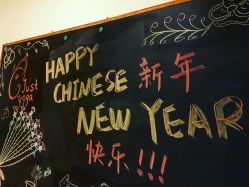 Just
yoga
HAPPY
CHINESE 新年
NEW YEAR
快乐!!!